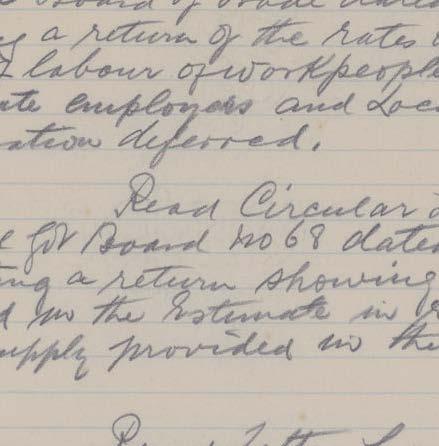 Board of Trade dated
a return of the rates
labour of workpeople
ate employers and Loc
ation deferred.
Read Circular
Gvt Board No 68 dated
ing a return showing
d in the Estimate in
supply provided in the
Read Letter